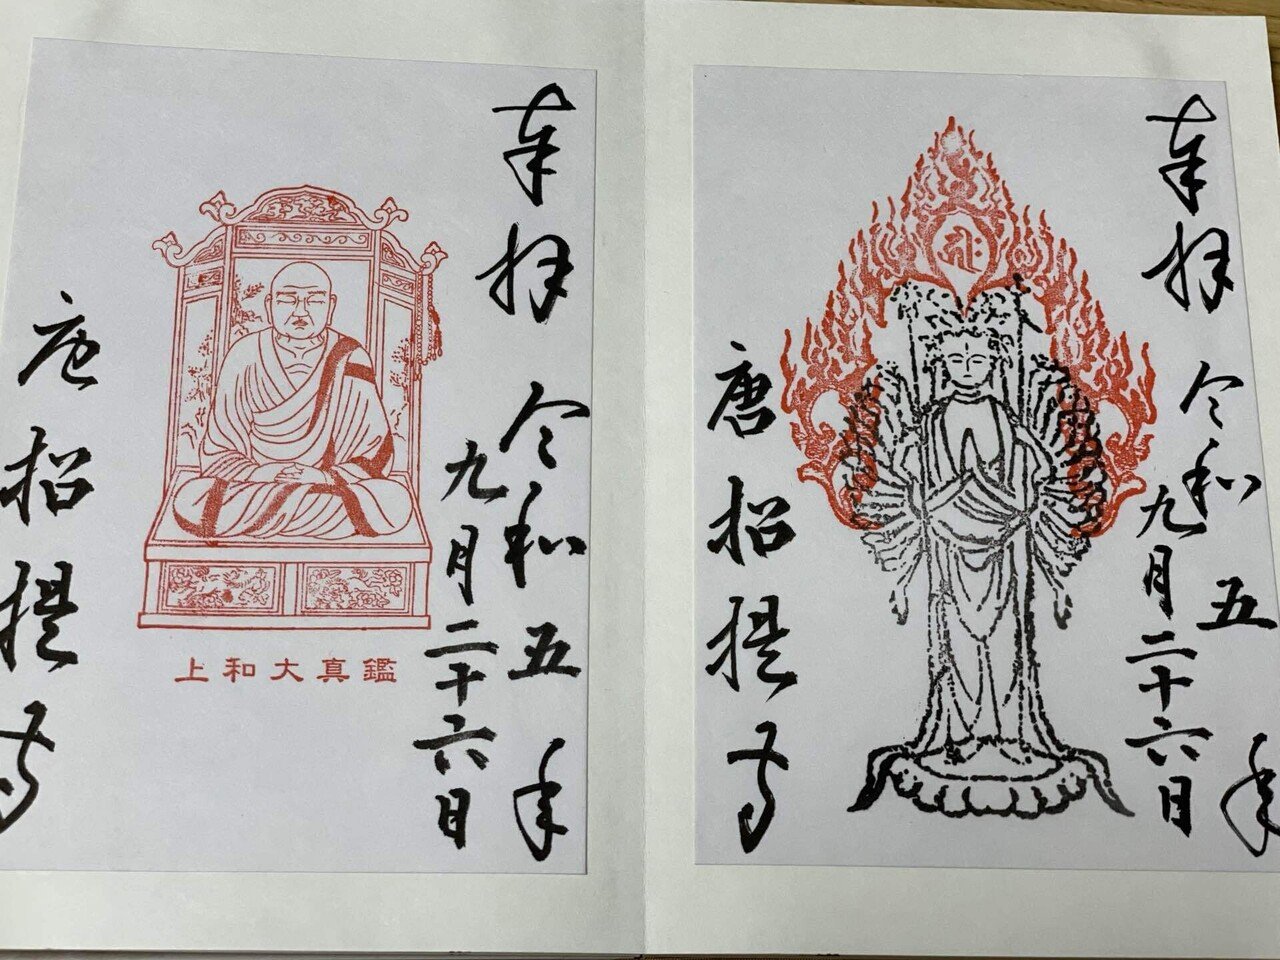 奉拝
令和五年
九月二十六日
上和大真鑑
唐招提寺
奉拝
令和五年
九月二十六日
唐招提寺